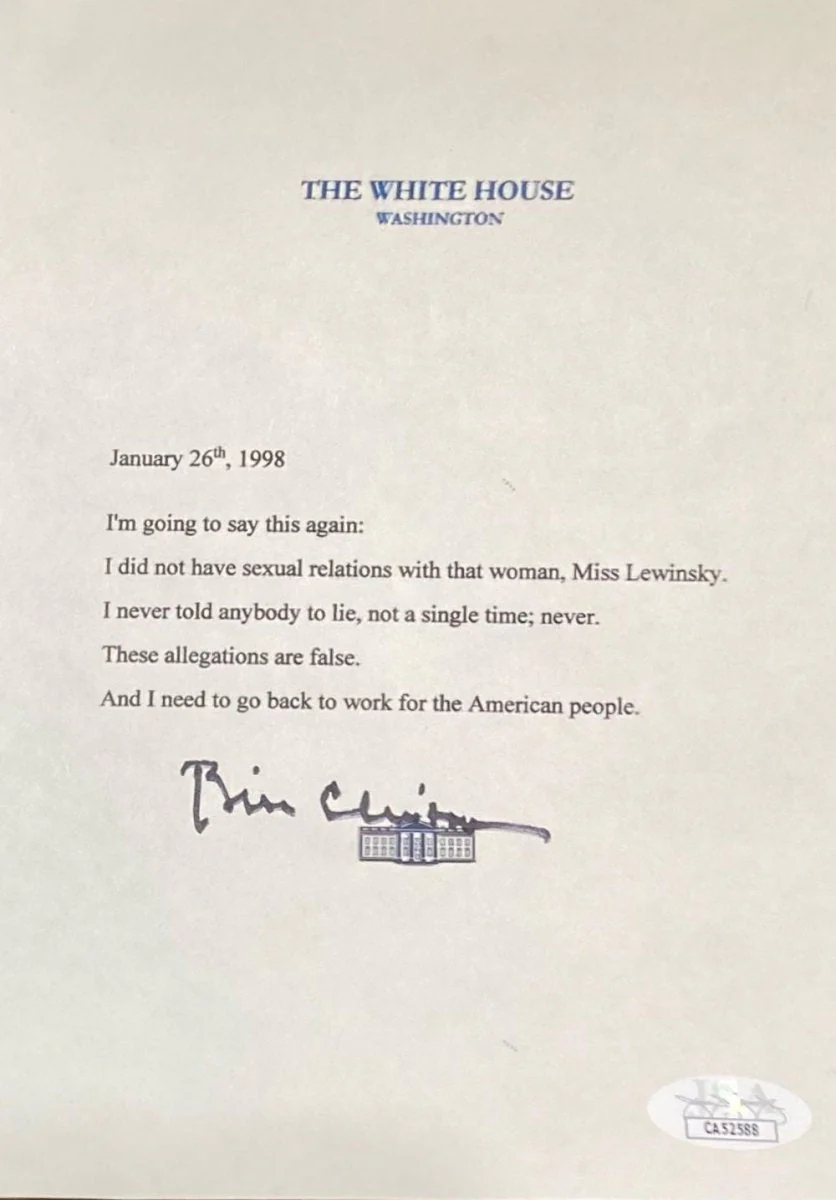 THE WHITE HOUSE
WASHINGTON
January 26th, 1998
I'm going to say this again:
I did not have sexual relations with that woman, Miss Lewinsky.
I never told anybody to lie, not a single time; never.
These allegations are false.
And I need to go back to work for the American people.
Bill Clinton
JSA
CA52588